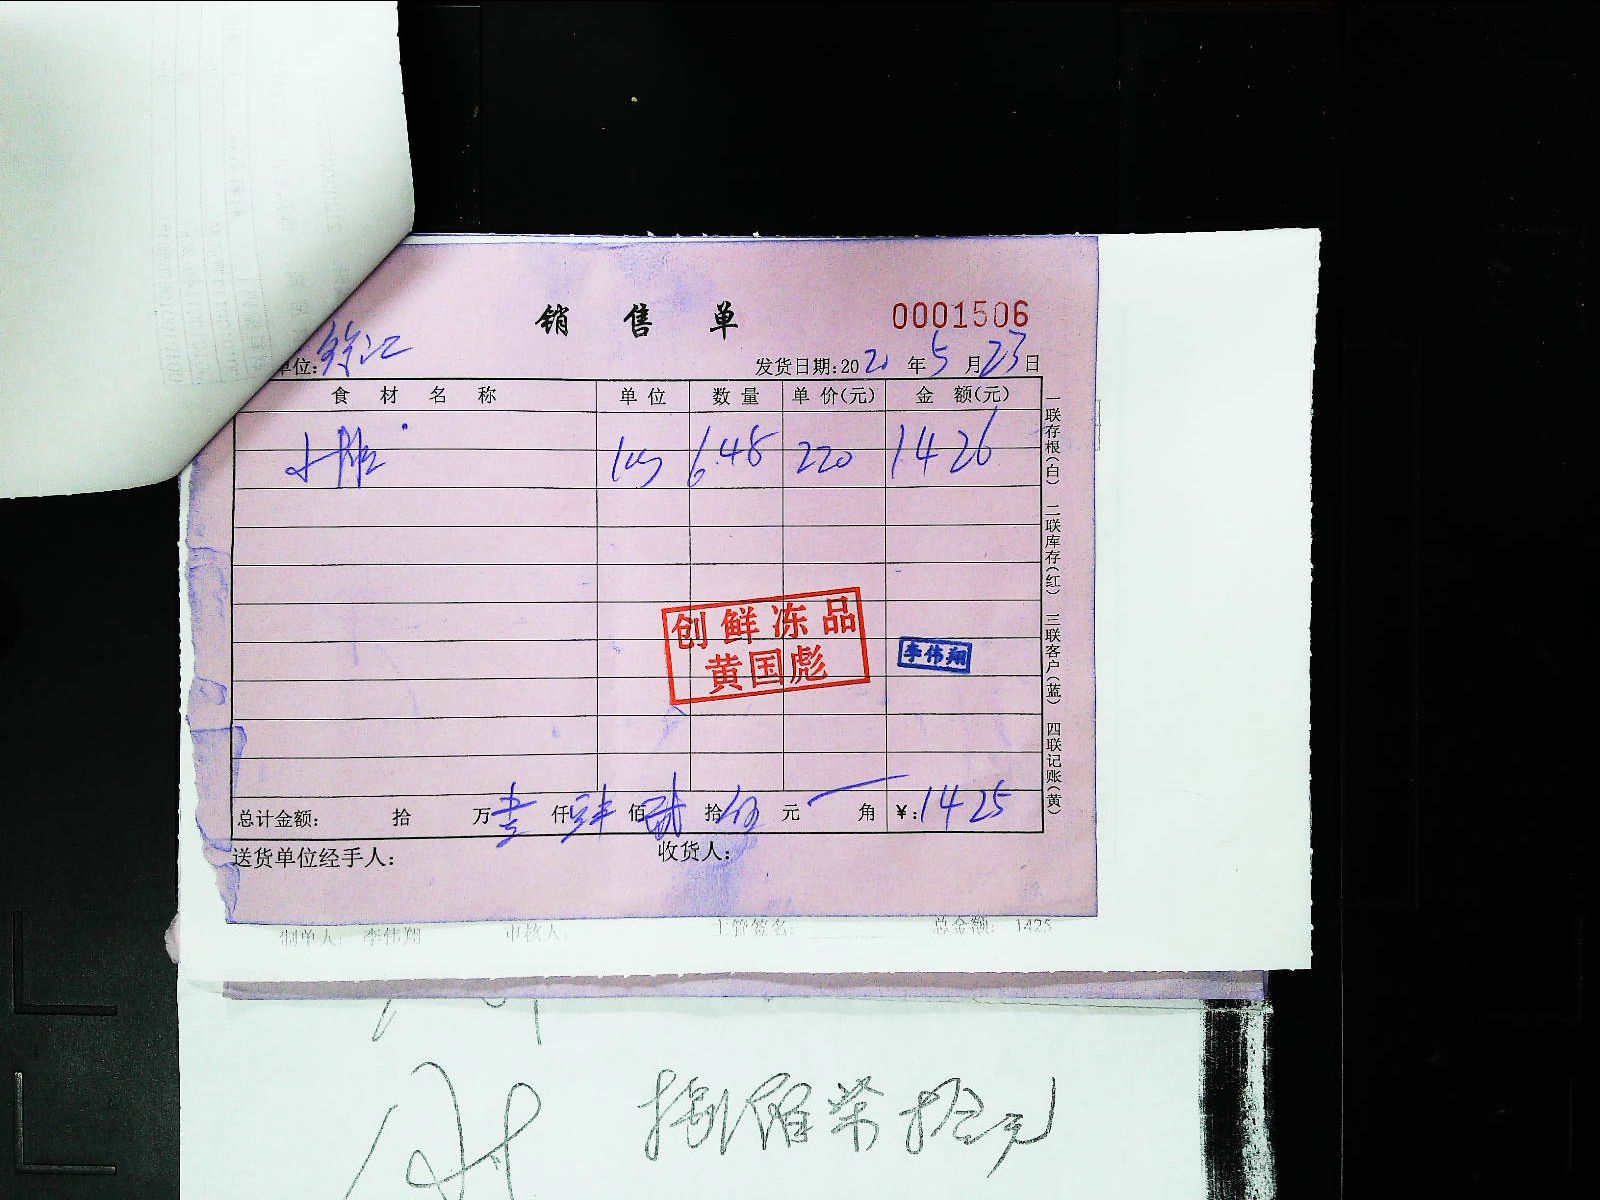 销 售 单
0001506
单位:余江 发货日期:2020年5月23日
食 材 名 称 单 位 数 量 单 价(元) 金 额(元)
kg 6.48 220 1426
创鲜冻品
黄国彪
李伟翔
总计金额: 拾 万壹仟肆佰贰拾伍元 角 ¥:1425
送货单位经手人: 收货人:
一联存根(白) 二联库存(红) 三联客户(蓝) 四联记账(黄)
制单人: 李伟翔 审核人: 主管签名: 总金额: 1425